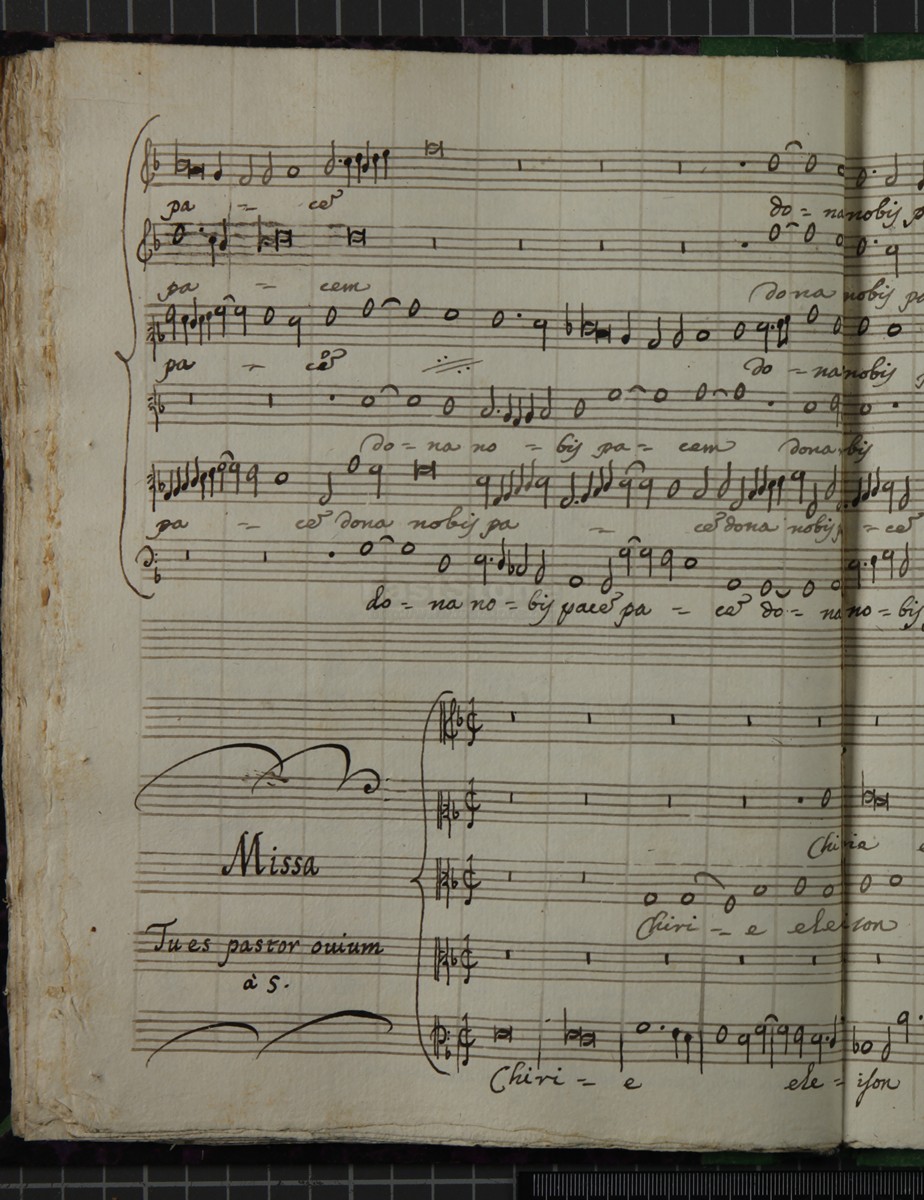 pa = cẽ do = na nobis p
pa = cem dona nobis pa
pa = cẽ do = na nobis
do = na no = bis pa = cem dona bis
pa = cẽ dona nobis pa = cẽ dona nobis p = cẽ
do = na no = bis pacẽ pa = cẽ do = na no = bis
Missa
Tu es pastor ouium
à 5.
Chiria e
Chiri = e eleison
Chiri = e ele = ison